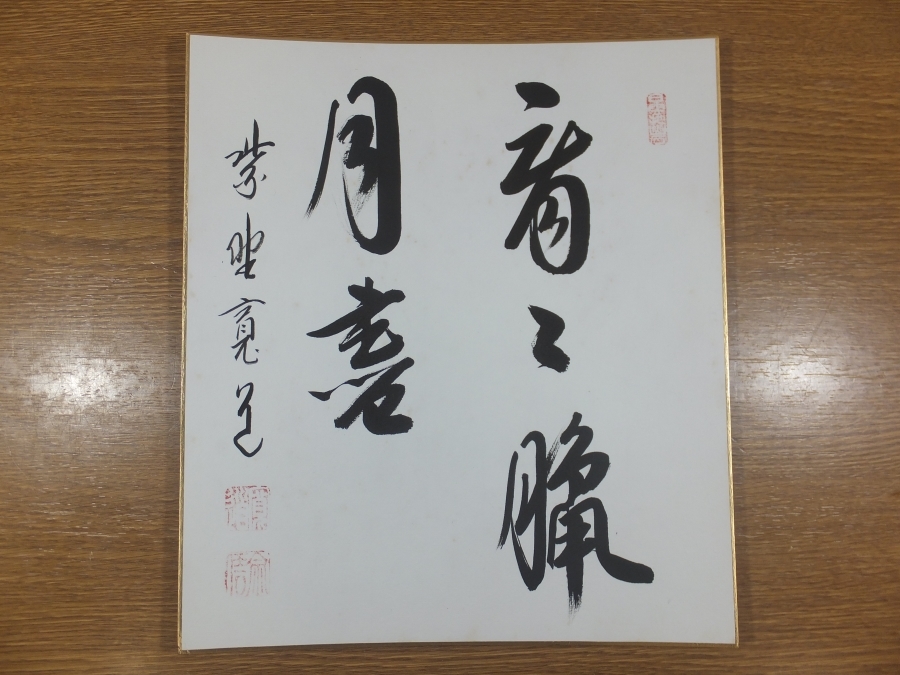 看々臘
月盡
紫野寛道